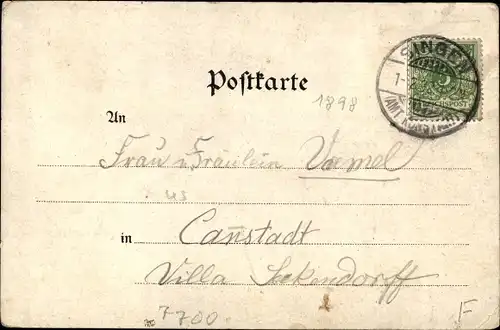 SINGEN
1-
(AMT KONSTANZ)
REICHSPOST
5
Postkarte
1898
An
Frau u Fräulein Uxmel
us
in Canstadt
Villa Seckendorff
7700.
F